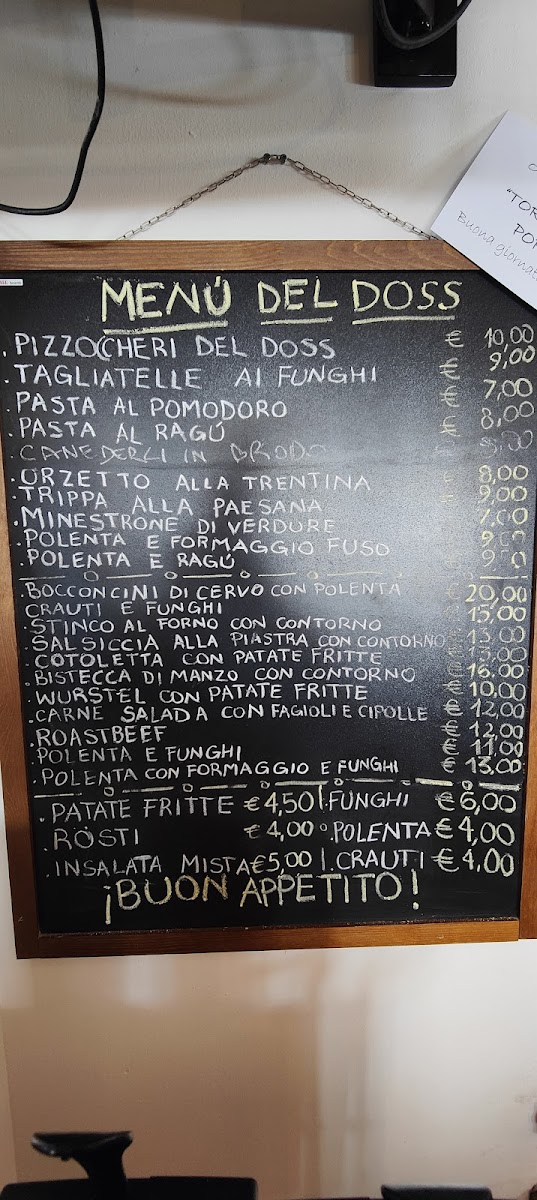 MENÚ DEL DOSS
. PIZZOCCHERI DEL DOSS € 10,00
. TAGLIATELLE AI FUNGHI € 9,00
. PASTA AL POMODORO € 7,00
. PASTA AL RAGÚ € 8,00
. CANEDERLI IN BRODO
. ORZETTO ALLA TRENTINA 8,00
. TRIPPA ALLA PAESANA 9,00
. MINESTRONE DI VERDURE 7,00
. POLENTA E FORMAGGIO FUSO
. POLENTA E RAGÚ
. BOCCONCINI DI CERVO CON POLENTA € 20,00
CRAUTI E FUNGHI
. STINCO AL FORNO CON CONTORNO € 15,00
. SALSICCIA ALLA PIASTRA CON CONTORNO € 13,00
. COTOLETTA CON PATATE FRITTE € 13,00
. BISTECCA DI MANZO CON CONTORNO € 16,00
. WURSTEL CON PATATE FRITTE € 10,00
. CARNE SALADA CON FAGIOLI E CIPOLLE € 12,00
. ROASTBEEF € 12,00
. POLENTA E FUNGHI € 11,00
. POLENTA CON FORMAGGIO E FUNGHI € 13,00
. PATATE FRITTE € 4,50 . FUNGHI € 6,00
. RÖSTI € 4,00 . POLENTA € 4,00
. INSALATA MISTA €5,00 . CRAUTI € 4,00
¡BUON APPETITO!
Buona giornata